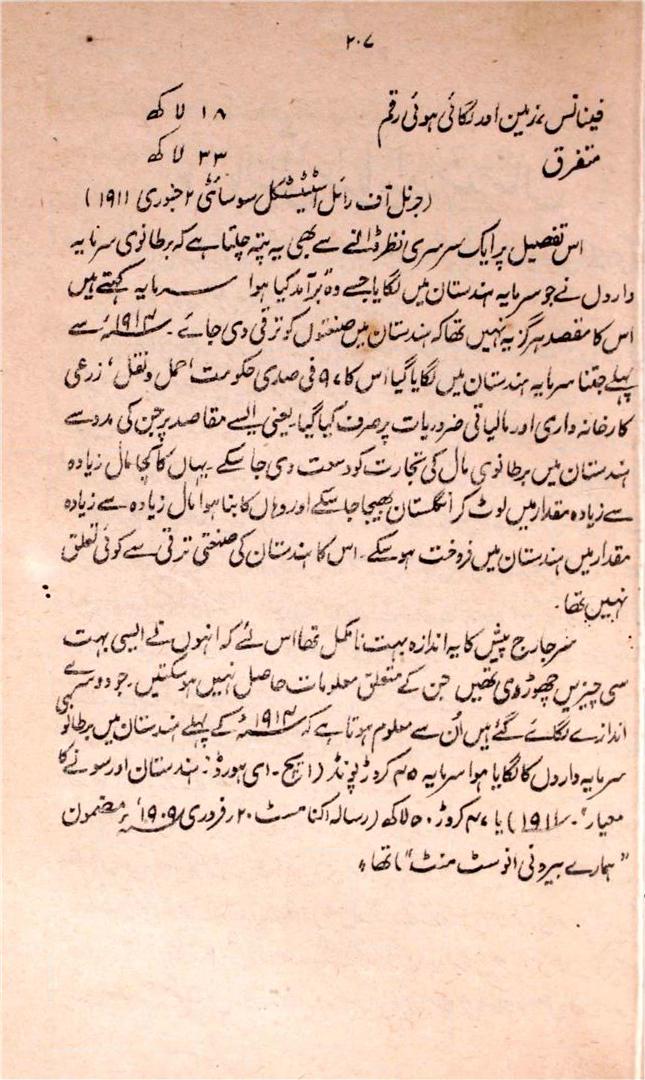 ۲۰۷
فینانس، زمین اور لگائی ہوئی رقم ۱۸ لاکھ
متفرق ۳۳ لاکھ
(جرنل آف رائل اسٹیٹسٹکل سوسائٹی ۲ جنوری ۱۹۱۱)
اس تفصیل پر ایک سرسری نظر ڈالنے سے بھی یہ پتہ چلتا ہے کہ برطانوی سرمایہ
داروں نے جو سرمایہ ہندستان میں لگایا جسے وہ برآمد کیا ہوا سرمایہ کہتے ہیں
اس کا مقصد ہرگز یہ نہیں تھا کہ ہندستان میں صنعتوں کو ترقی دی جائے۔ ۱۹۱۴ء سے
پہلے جتنا سرمایہ ہندستان میں لگایا گیا اس کا ۹۷ فی صدی حکومت، حمل و نقل، زرعی
کارخانہ داری اور مالیاتی ضروریات پر صرف کیا گیا۔ یعنی ایسے مقاصد پر جن کی مدد سے
ہندستان میں برطانوی مال کی تجارت کو وسعت دی جا سکے۔ یہاں کا کچا مال زیادہ
سے زیادہ مقدار میں لوٹ کر انگلستان بھیجا جا سکے اور وہاں کا بنا ہوا مال زیادہ سے زیادہ
مقدار میں ہندستان میں فروخت ہو سکے۔ اس کا ہندستان کی صنعتی ترقی سے کوئی تعلق
نہیں تھا۔
سر جارج پیش کا یہ اندازہ بہت نامکمل تھا اس لئے کہ انہوں نے ایسی بہت
سی چیزیں چھوڑ دی تھیں جن کے متعلق معلومات حاصل نہیں ہو سکتیں۔ جو دوسرے
اندازے لگائے گئے ہیں اُن سے معلوم ہوتا ہے کہ ۱۹۱۴ء کے پہلے ہندستان میں برطانوی
سرمایہ داروں کا لگایا ہوا سرمایہ ۴۵ کروڑ پونڈ (ایچ۔ ای ہورڈ: ہندستان اور سونے کا
معیار"۔ ۱۹۱۱ء) یا ۴۷ کروڑ ۵۰ لاکھ (رسالہ اکنامسٹ ۲۰ر فروری ۱۹۰۹ء مضمون
"ہمارے بیرونی انوسٹ منٹ") تھا۔